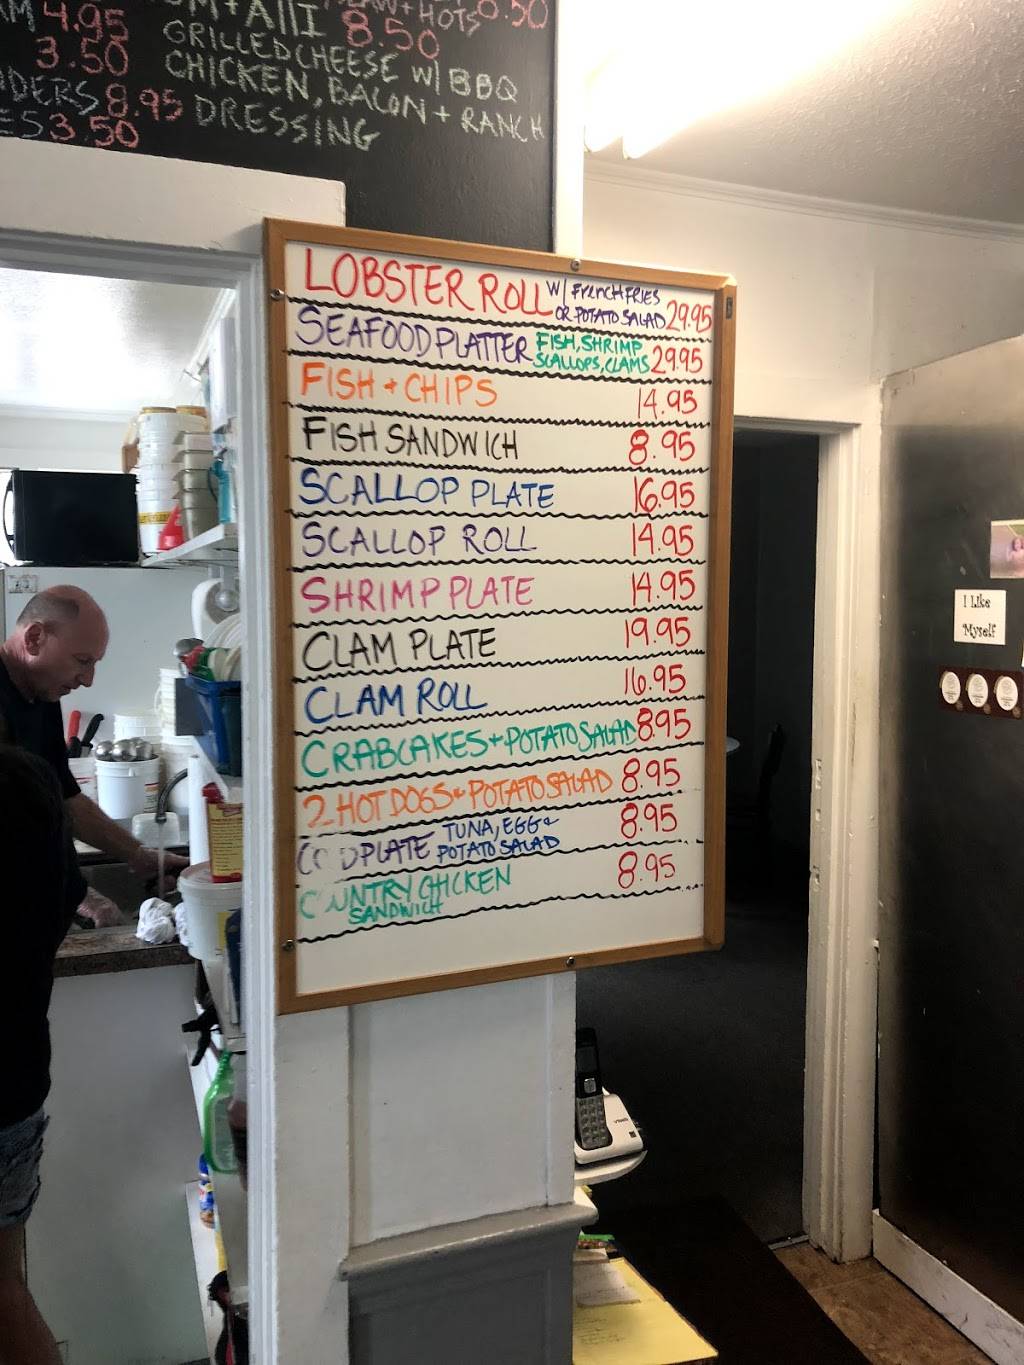 4.95
+ HOTS 8.50
3.50 8.50
GRILLED CHEESE W/ BBQ
8.95 CHICKEN, BACON + RANCH
3.50 DRESSING
LOBSTER ROLL W/ FRENCH FRIES
OR POTATO SALAD 29.95
SEAFOOD PLATTER FISH, SHRIMP
SCALLOPS, CLAMS 29.95
FISH + CHIPS 14.95
FISH SANDWICH 8.95
SCALLOP PLATE 16.95
SCALLOP ROLL 14.95
SHRIMP PLATE 14.95
CLAM PLATE 19.95
CLAM ROLL 16.95
CRABCAKES + POTATO SALAD 8.95
2 HOT DOGS & POTATO SALAD 8.95
C D PLATE TUNA, EGG &
POTATO SALAD 8.95
C UNTRY CHICKEN 8.95
SANDWICH
I Like
Myself
vtech